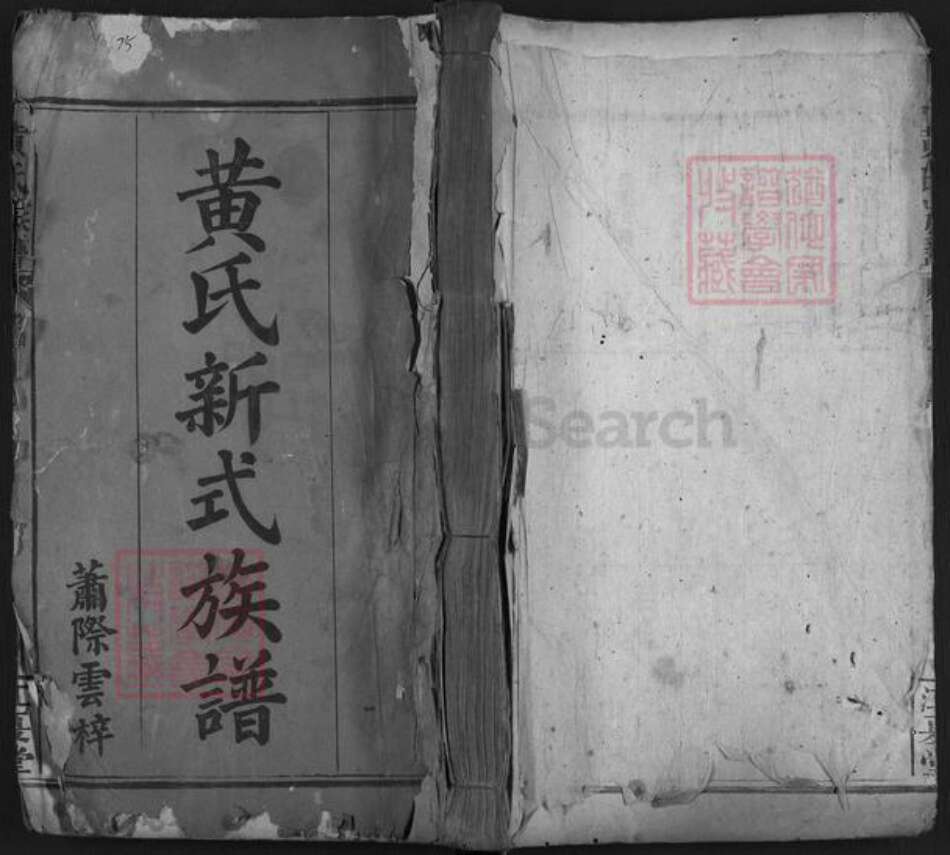 黃氏新式族譜
蕭際雲梓
75
Search
猶他家
譜學會
收藏